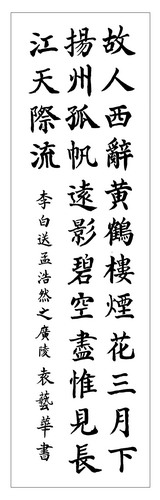 故人西辭黃鶴樓煙花三月下
揚州孤帆遠影碧空盡惟見長
江天際流
李白送孟浩然之廣陵 袁藝華書